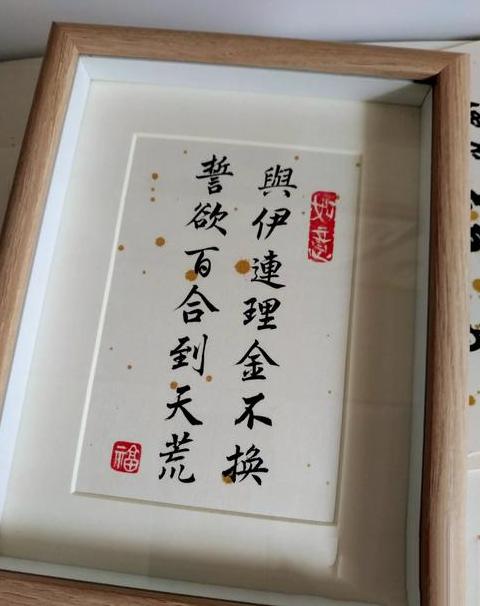 如意
與伊連理金不換
誓欲百合到天荒
福